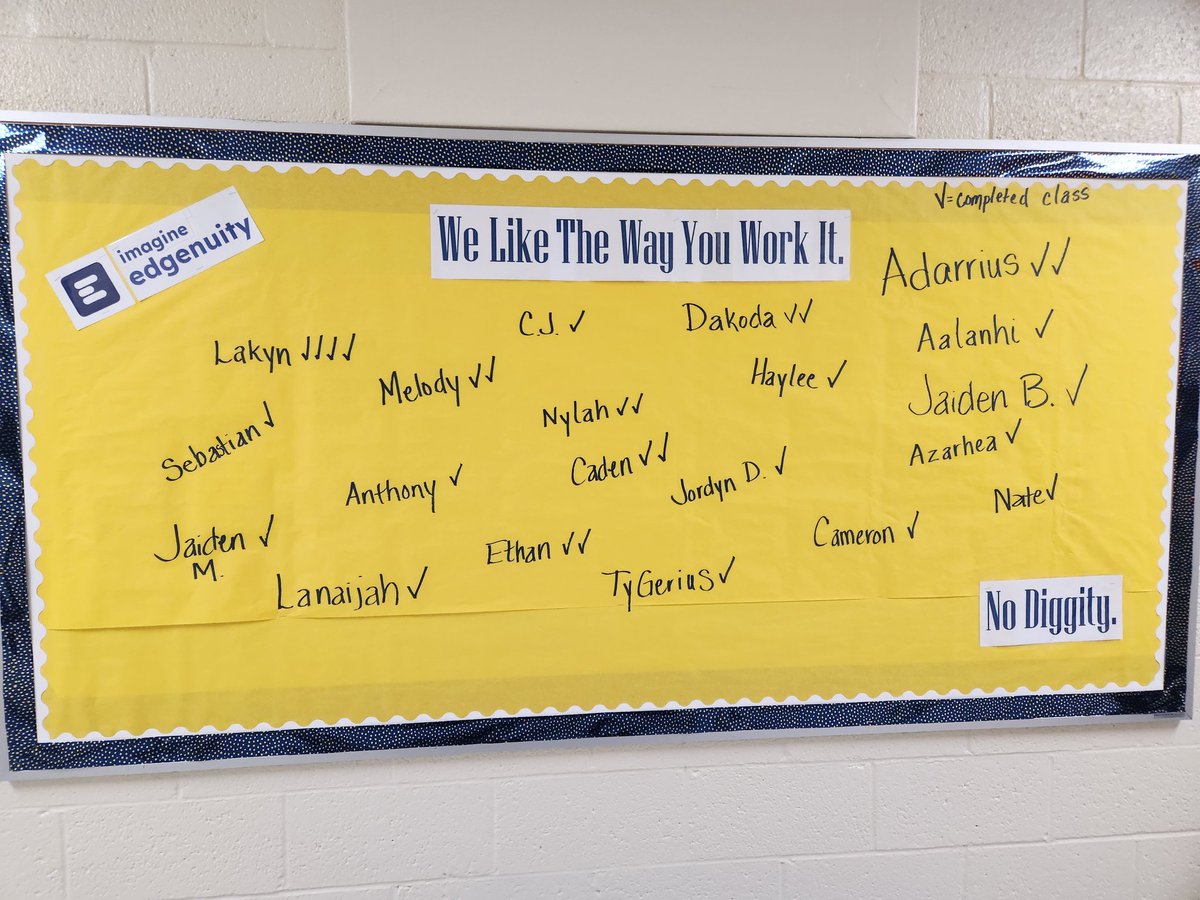 imagine
edgenuity
We Like The Way You Work It.
√=completed class
Adarrius √√
C.J. √
Dakoda √√
Aalanhi √
Lakyn √√√√
Melody √√
Haylee √
Jaiden B. √
Nylah √√
Sebastian √
Azarhea √
Caden √√
Anthony √
Jordyn D. √
Nate √
Jaiden √
M.
Ethan √√
Cameron √
Lanaijah √
TyGerius √
No Diggity.